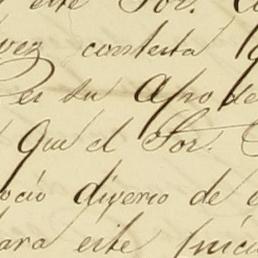 este Sor.
vez contesta
en su Apo de
Que el Sor.
ocio diverso de
para este